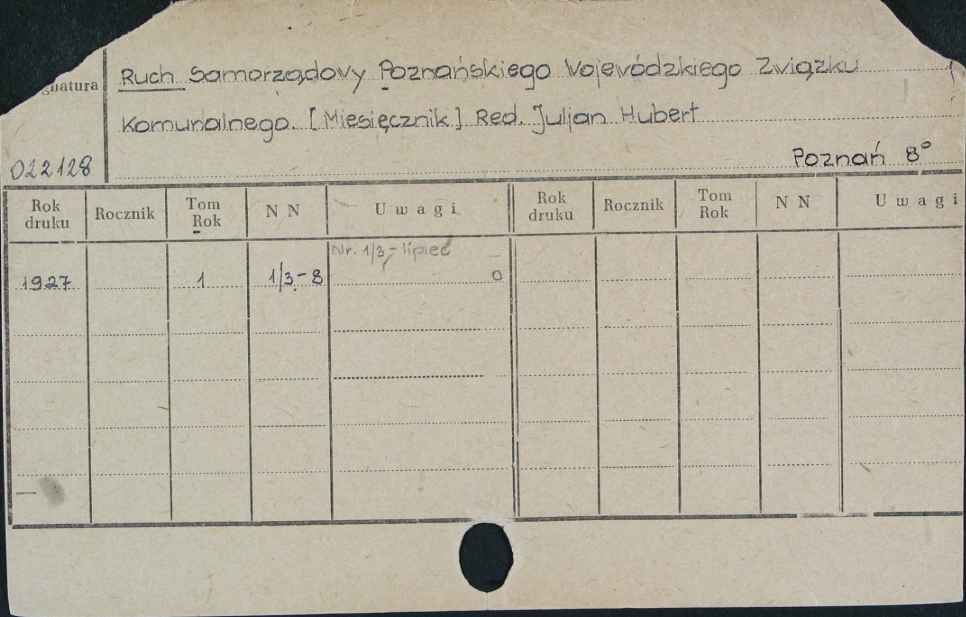 gnatura
Ruch Samorządowy Poznańskiego Wojewódzkiego Związku
Komunalnego. [Miesięcznik] Red. Juljan Hubert
022128
Poznań 8°
Rok druku Rocznik Tom Rok N N Uwagi Rok druku Rocznik Tom Rok N N Uwagi
Nr. 1/3 - lipiec
1927 1 1/3 - 8 0